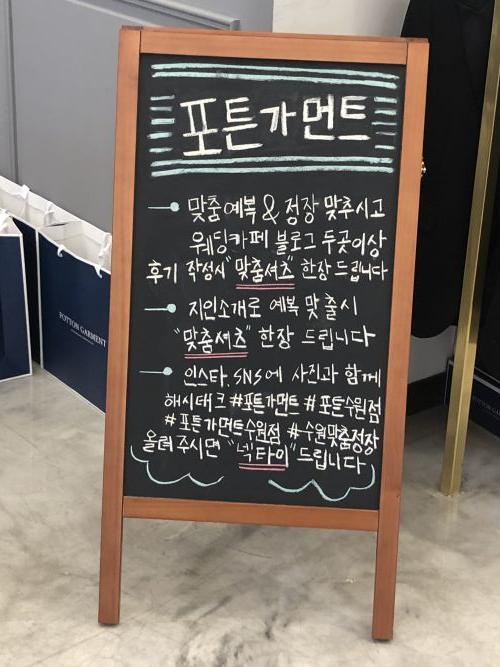 포튼가먼트
맞춤예복 & 정장 맞추시고
웨딩카페 블로그 두곳이상
후기 작성시 "맞춤셔츠" 한장 드립니다
지인소개로 예복 맞출시
"맞춤셔츠" 한장 드립니다
인스타, SNS에 사진과 함께
해시태크 #포튼가먼트 #포튼수원점
#포튼가먼트수원점 #수원맞춤정장
올려주시면 "넥타이" 드립니다
POTTON GARMENT